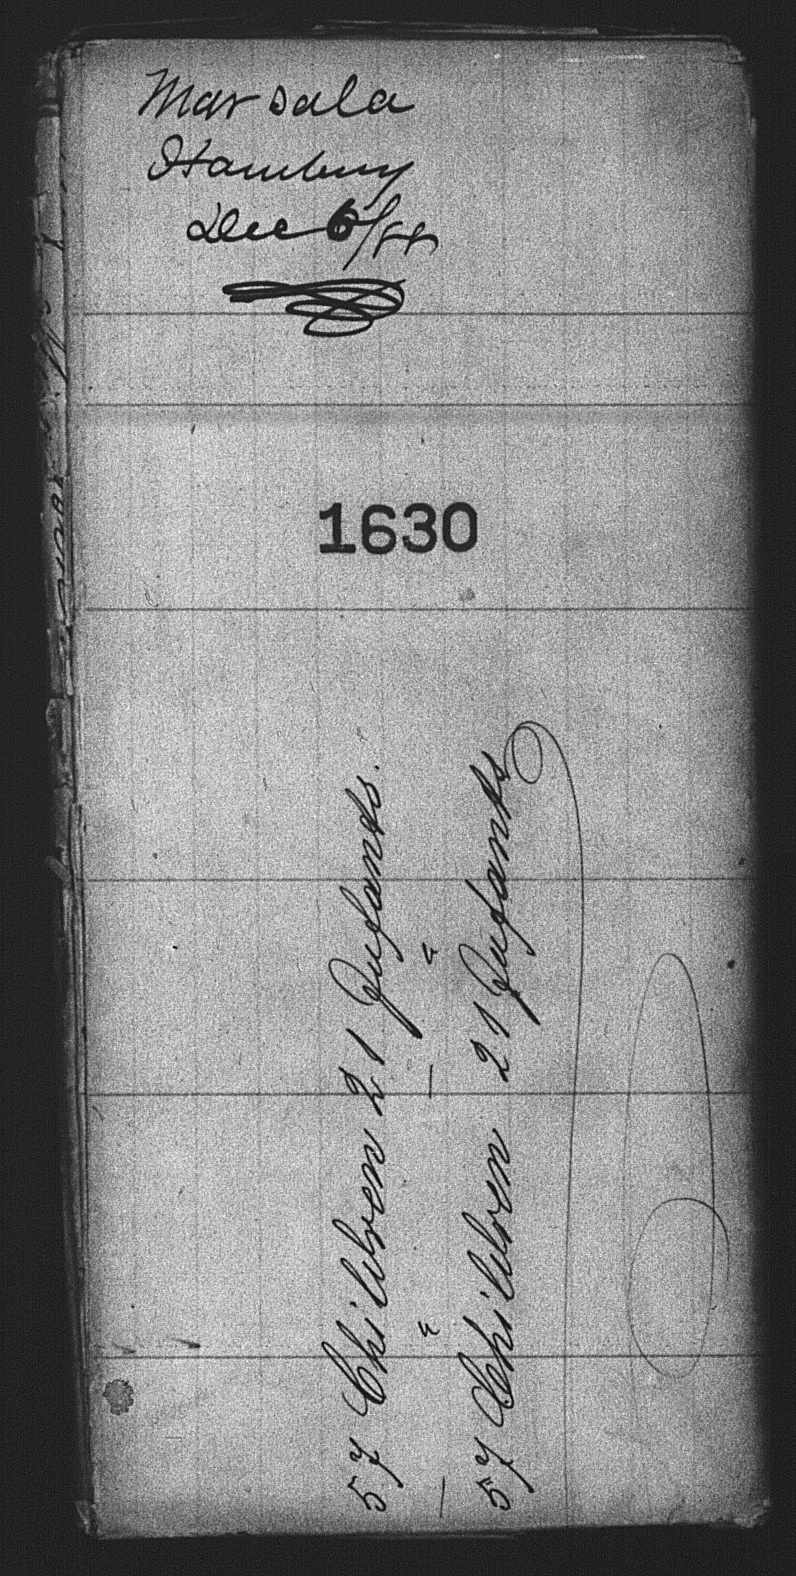 Marsala
Hamburg
Dec 6/88
1630
57 Children 21 Infants.
57 Children 21 Infants